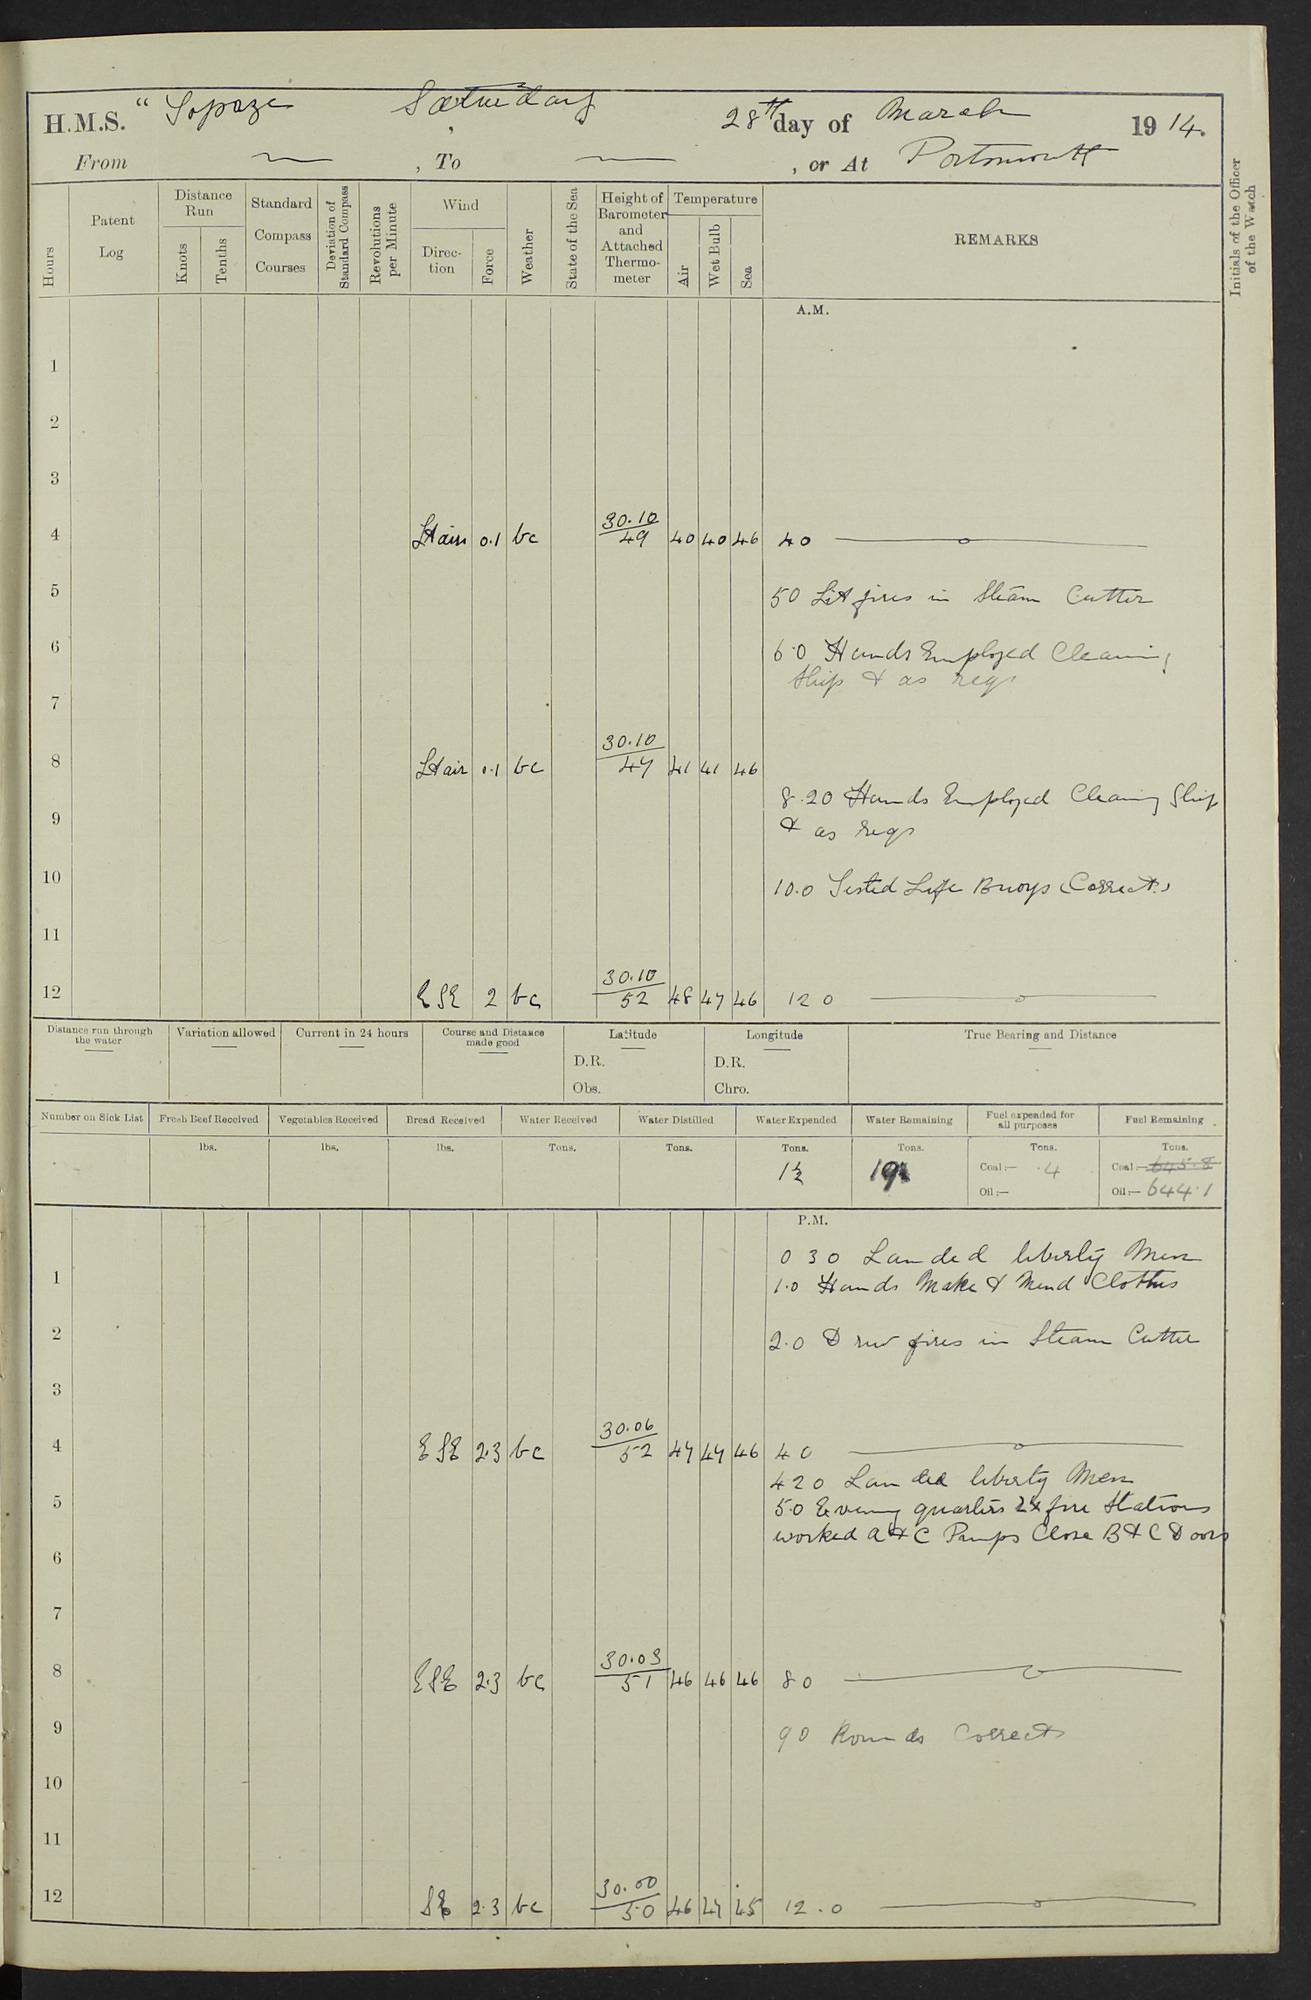 H.M.S. "Topaze , Saturday 28th day of March 1914.
From — , To — , or At Portsmouth
Hours
Patent Log
Distance Run
Knots
Tenths
Standard Compass Courses
Deviation of Standard Compass
Revolutions per Minute
Wind
Direction
Force
Weather
State of the Sea
Height of Barometer and Attached Thermometer
Temperature
Air
Wet Bulb
Sea
REMARKS
Initials of the Officer of the Watch
A.M.
1
2
3
4 Lt airs 0.1 bc 30.10/49 40 40 46 4 0
5 5 0 Lit fires in Steam Cutter
6 6.0 Hands Employed Cleaning
Ship & as reqs
7
8 Lt air 0.1 bc 30.10/47 41 41 46
8.20 Hands Employed Cleaning Ship
9
& as reqs
10 10.0 Tested Life Buoys (Correct.)
11
12 ESE 2 bc 30.10/52 48 47 46 12 0
Distance run through the water
Variation allowed
Current in 24 hours
Course and Distance made good
Latitude
D.R.
Obs.
Longitude
D.R.
Chro.
True Bearing and Distance
Number on Sick List
Fresh Beef Received
lbs.
Vegetables Received
lbs.
Bread Received
lbs.
Water Received
Tons.
Water Distilled
Tons.
Water Expended
Tons.
1½
Water Remaining
Tons.
Fuel expended for all purposes
Tons.
Coal:— .4
Oil:—
Fuel Remaining
Tons.
Coal:— 645.8
Oil:— 644.1
P.M.
0 30 Landed liberty Men
1 1.0 Hands Make & Mend Clothes
2 2.0 Drew fires in Steam Cutter
3
4 ESE 2.3 bc 30.06/52 47 47 46 4 0
4 20 Landed liberty Men
5 5.0 Evening quarters fire Stations
worked A & C Pumps Close B & C Doors
6
7
8 ESE 2.3 bc 30.03/51 46 46 46 8 0
9 9 0 Rounds Correct
10
11
12 SE 2.3 bc 30.00/50 46 47 45 12.0